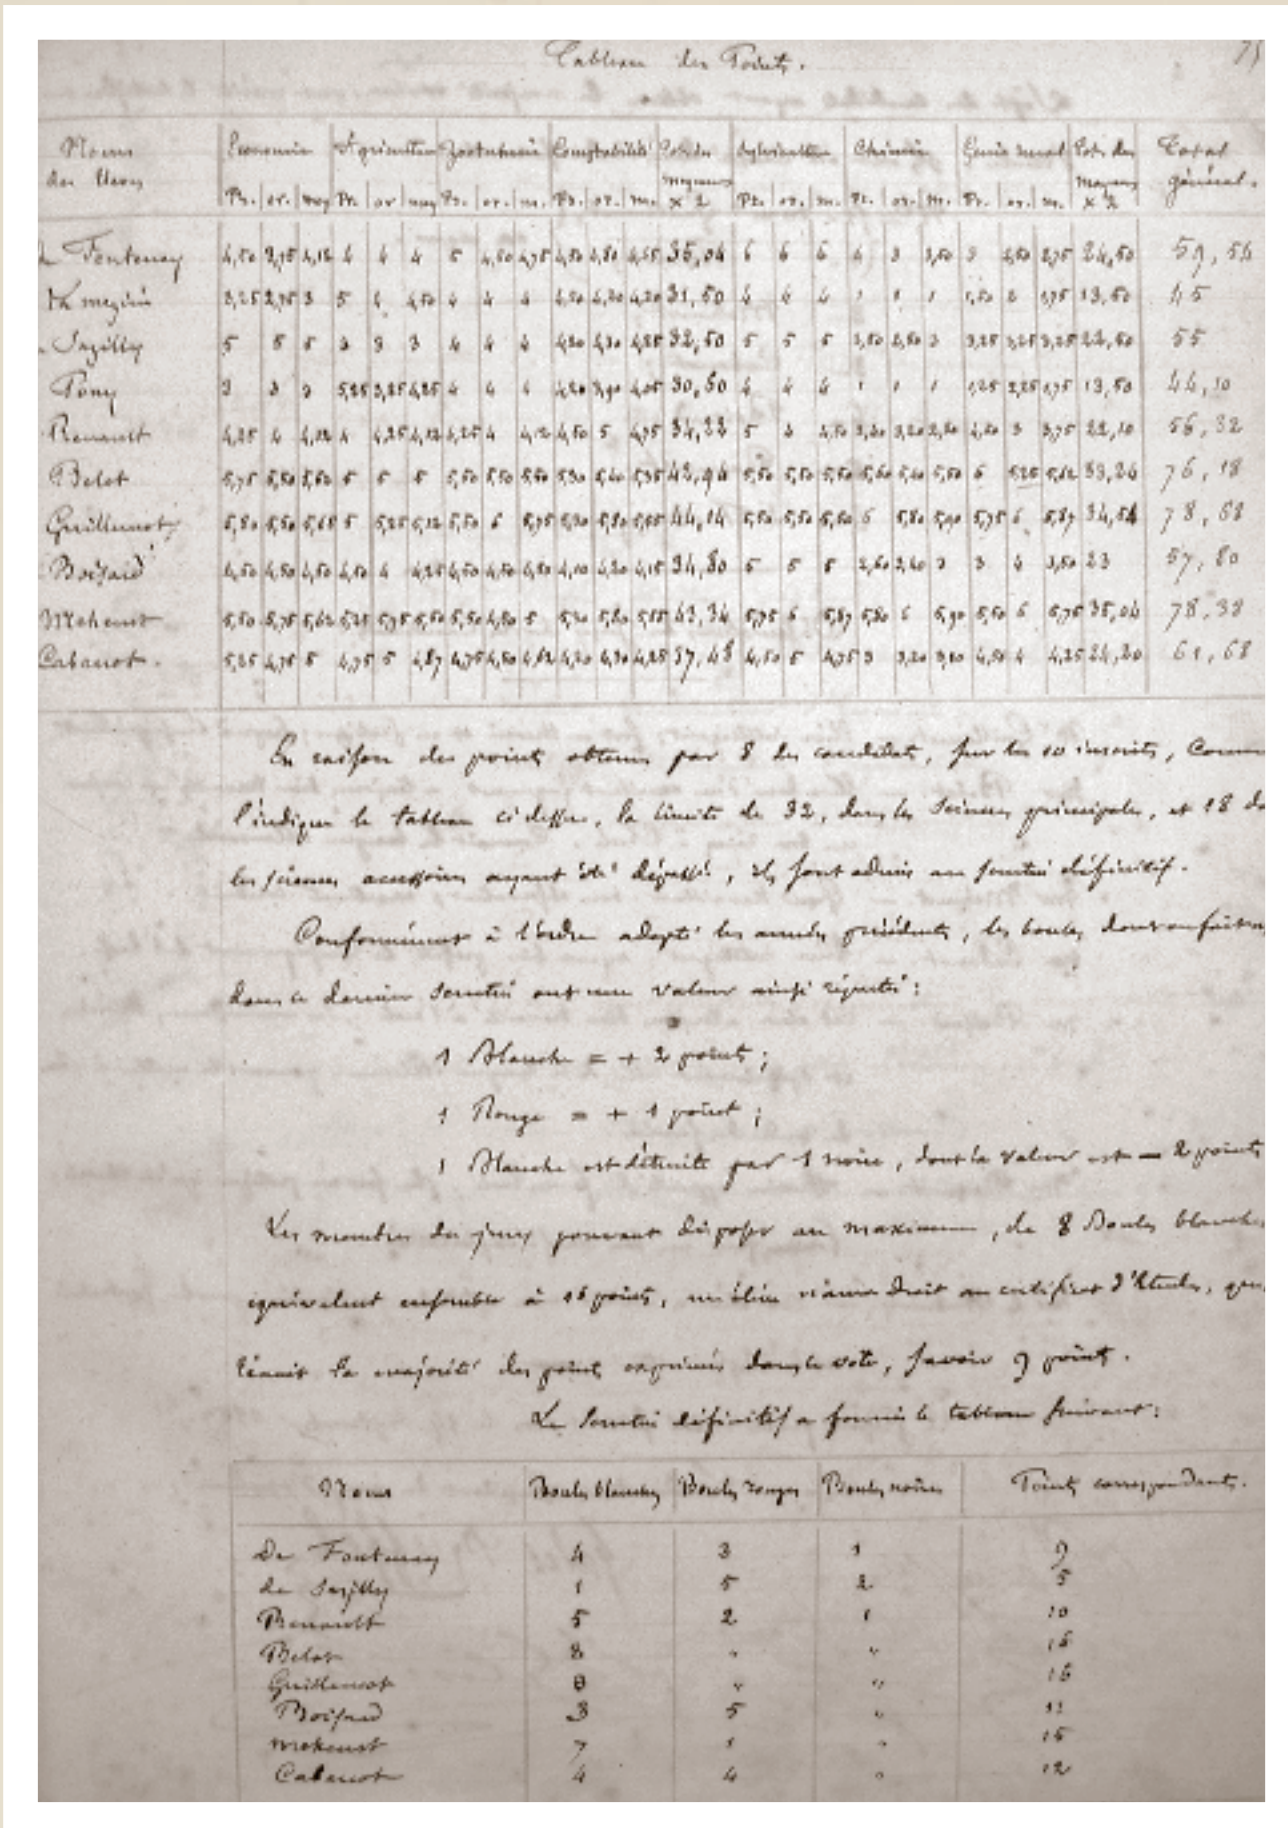 Tableau des Points.
75
Noms des Elèves Economie Agriculture Zootechnie Comptabilité Tot. des moyennes x 2 Sylviculture Chimie Génie rural Tot. des moyens x 2 Total général.
Pr. or. moy Pr. or moy Pr. or. m. Pr. or. m. Pr. or. m. Pr. or. m. Pr. or. m.
de Fontenay 4,50 3,75 4,12 4 4 4 5 4,50 4,75 4,50 4,80 4,65 35,04 6 6 6 4 3 3,50 3 2,50 2,75 24,50 59,54
3,25 2,75 3 5 4 4,50 4 4 4 4,20 4,20 4,20 31,50 4 4 4 1 1 1 1,50 2 1,75 13,50 45
Sazilly 5 5 5 3 3 3 4 4 4 4,20 4,30 4,25 32,50 5 5 5 3,50 2,50 3 3,25 3,25 3,25 22,50 55
Pony 3 3 3 5,25 3,25 4,25 4 4 4 4,20 3,90 4,05 30,60 4 4 4 1 1 1 1,25 2,25 1,75 13,50 44,10
Renault 4,25 4 4,12 4 4,25 4,12 4,25 4 4,12 4,50 5 4,75 34,22 5 4 4,50 2,40 3,20 2,80 4,50 3 3,75 22,10 56,32
Belot 5,75 5,50 5,62 5 5 5 5,50 5,50 5,50 5,30 5,40 5,35 42,94 5,50 5,50 5,50 5,60 5,40 5,50 6 5,25 5,62 33,24 76,18
Guillemot 5,80 5,50 5,65 5 5,25 5,12 5,50 6 5,75 5,30 5,80 5,55 44,14 5,50 5,50 5,50 6 5,80 5,90 5,75 6 5,87 34,54 78,68
Boisard 4,50 4,50 4,50 4,50 4 4,25 4,50 4,50 4,50 4,10 4,20 4,15 34,80 5 5 5 3,60 2,40 3 3 4 3,50 23 57,80
Meheust 5,50 5,75 5,62 5,25 5,75 5,50 5,50 4,50 5 5,30 5,80 5,55 43,34 5,75 6 5,87 5,80 6 5,90 5,50 6 5,75 35,04 78,38
Cabanot. 5,25 4,75 5 4,75 5 4,87 4,75 4,50 4,62 4,20 4,30 4,25 37,48 4,50 5 4,75 3 3,20 3,10 4,50 4 4,25 24,20 61,68
En raison des points obtenus par 8 des candidats, sur les 10 inscrits, comme
l'indique le tableau ci dessus, la limite de 32, dans les Sciences principales, et 18 da
les sciences accessoires ayant été dépassé, ils sont admis au scrutin définitif.
Conformément à l'ordre adopté les années précédents, les boules dont on fait
dans ce dernier scrutin ont une valeur ainsi répartie :
1 Blanche = + 2 points ;
1 Rouge = + 1 point ;
1 Blanche est détruite par 1 noire, dont la valeur est - 2 points
Les membres du jury pouvant disposer au maximum, de 8 Boules blanches
équivalent ensemble à 16 points, un élève n'aura droit au certificat d'Etudes, que
réunit la majorité des points exprimés dans le vote, savoir 9 points.
Le Scrutin définitif a fourni le tableau suivant :
Noms Boules blanches Boules rouges Boules noires Points correspondants.
De Fontenay 4 3 1 9
de Sazilly 1 5 2 3
Renault 5 2 1 10
Belot 8 " " 16
Guillemot 8 " " 16
Boisard 3 5 " 11
Mekeust 7 1 " 15
Cabanot 4 4 " 12